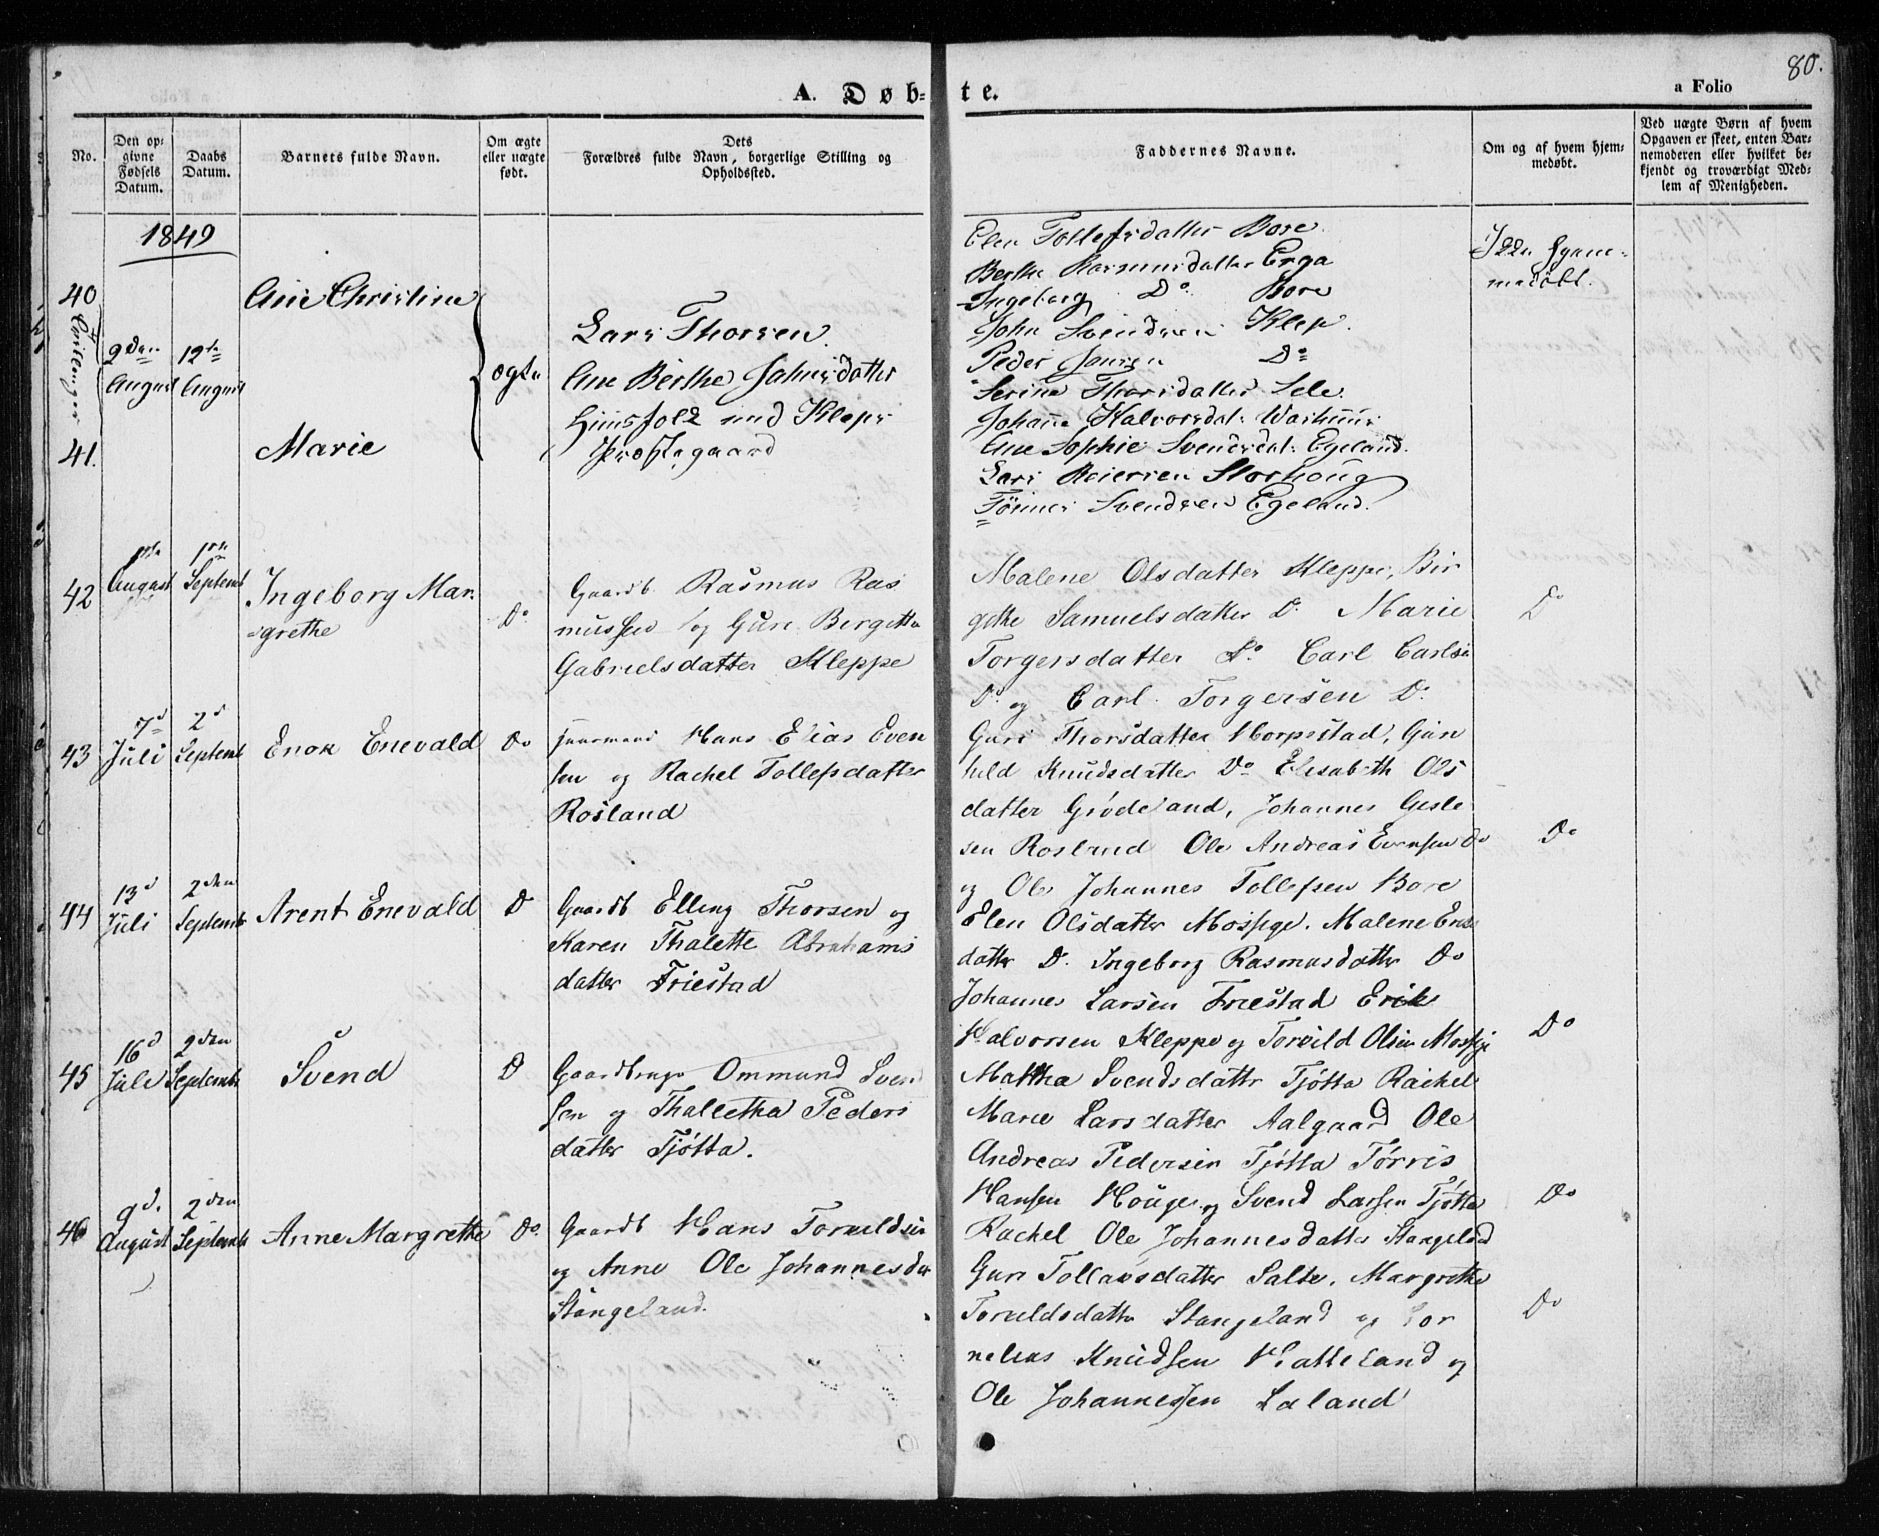 80.
A. Døb- te.
a Folio
No.
Den op-
givne
Fødsels
Datum.
Daabs
Datum.
Barnets fulde Navn.
Om ægte
eller uægte
født.
Dets
Forældres fulde Navn, borgerlige Stilling og
Opholdssted.
Faddernes Navne.
Om og af hvem hjem-
medøbt.
Ved uægte Børn af hvem
Opgaven er skeet, enten Bar-
nemoderen eller hvilket be-
kjendt og troværdigt Med-
lem af Menigheden.
1849
40
Tvillinger
41.
9den
August
12te
August
Ane Christine
Marie
ægte
Lars Thorsen
Ane Berthe Jahnsdatter
Huusfolk ved Kleps
Præstegaard
Elen Tollefsdatter Bore
Berthe Rasmusdatter Erga
Ingeborg Do Bore
John Svendsen Klep.
Peder Jansen Do
Serine Thorsdatter Sele.
Johanne Halvorsdat:
Ane Sophie Svendsdat: Egeland.
Lars Reiersen Storhoug
Tønnes Svendsen Egeland.
Ikke hjem-
medøbt.
42
August
Septemb
Ingeborg Mar-
grethe
Do
Gaardb. Rasmus Ras
mussen og Guri Bergitta
Gabrielsdatter Kleppe
Malene Olsdatter Kleppe, Bir
githe Samuelsdatter Do Marie
Torgersdatter Do. Carl Carlsen
Do og Carl Torgersen Do
Do
43
7d
Juli
2d
Septemb
Enok Enevald
Do
Huusmand Hans Elias Even
sen og Rachel Tollefsdatter
Rosland
Guri Thorsdatter Horpestad, Gun
hild Knudsdatter Do Elisabeth Ols
datter Grødeland, Johannes Gisle
sen Rosland Ole Andreas Evensen Do
og Ole Johannes Tollefsen Bore
Do
44
13d
Juli
2den
Septemb
Arent Enevald
D
Gaardb Elling Thorsen og
Karen Thalette Abrahams
datter Friestad
Elen Olsdatter Mossige. Malene
datter D. Ingeborg Rasmusdatter Do
Johannes Larsen Friestad Erik
Halvorsen Kleppe og Torvild Olsen Mossige
Do
45
16d
Juli
2den
Septemb
Svend
D
Gaardbruger Ommund Svend
sen og Thalletha Peders
datter Tjøtta.
Martha Svendsdattr Tjøtta Rachel
Marie Larsdatter Aalgaard Ole
Andreas Pedersen Tjøtta Tørris
Hansen Houge og Svend Larsen Tjøtta
Do
46
9d.
August
2den
Septemb
Anne Margrethe
Do
Gaardb Hans Torvildsen
og Anne Ole Johannesdtr
Stangeland.
Rachel Ole Johannesdatter Stangeland
Guri Tollavsdatter Salte. Margrethe
Torvildsdatter Stangeland og Cor
nelius Knudsen Hatteland og
Ole Johannessen Laland
Do